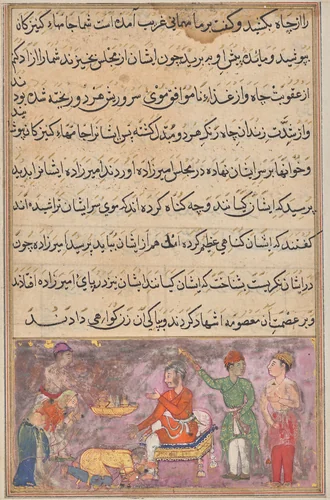 را از چاه بکشید و گفت بر ما مهمانی غریب آمده است شما جامهاء کنیزکان
بپوشید و مایده پیش او به برید چون ایشان از مجلس بخیزند شما را ازاد کنم
از عقوبت چاه و از غذاء ناموافق موی سر و ریش هر دو ریخته شده بود
و از شدت زندان چاه رنگ هر دو مبدل گشته پس ایشانرا جامهاء کنیزکان پوشانیدند
و خوانها بر سر ایشان نهاده در مجلس امیرزاده اوردند امیرزاده ایشانرا بدید
پرسید که ایشان کیانند و چه گناه کرده اند که موی سر ایشان تراشیده اند
گفتند که ایشان گناهی عظیم کرده اند هم از ایشان بباید پرسید امیرزاده چون
در ایشان نگریست بشناخت که ایشان کیانند ایشان نیز در پای امیرزاده افتادند
و بر عصمت آن معصومه اشهاد کردند و بپاکی آن زن گواهی دادند